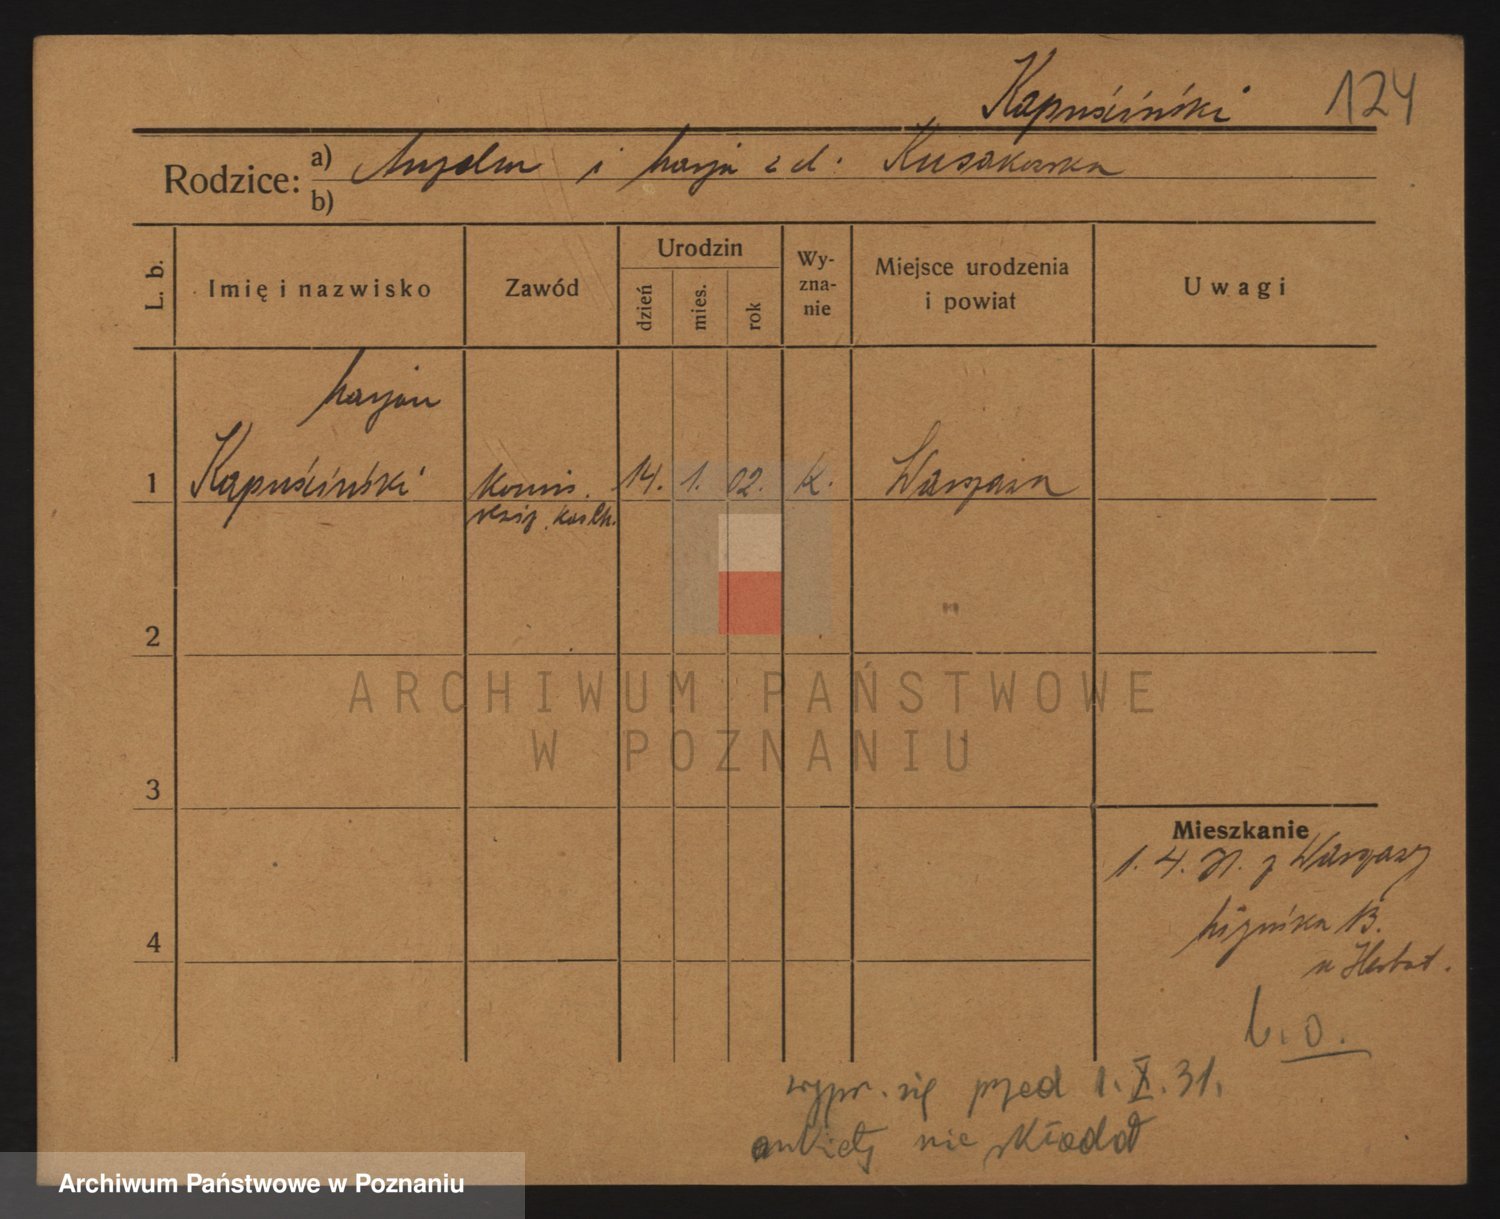 Kapuściński 124
Rodzice: a) Anzelm i Marja z d. Kusakowska
b)
L. b. Imię i nazwisko Zawód Urodzin dzień mies. rok Wy-zna-nie Miejsce urodzenia i powiat Uwagi
Marjan
1 Kapuściński 14. 1. 02. K. Warszawa
2
3
4
Mieszkanie
1. 4. 31. z Warszawy
B.
u Herbst.
b. o.
wypr. się przed 1. X. 31.
ankiety nie składał
ARCHIWUM PAŃSTWOWE
W POZNANIU
Archiwum Państwowe w Poznaniu